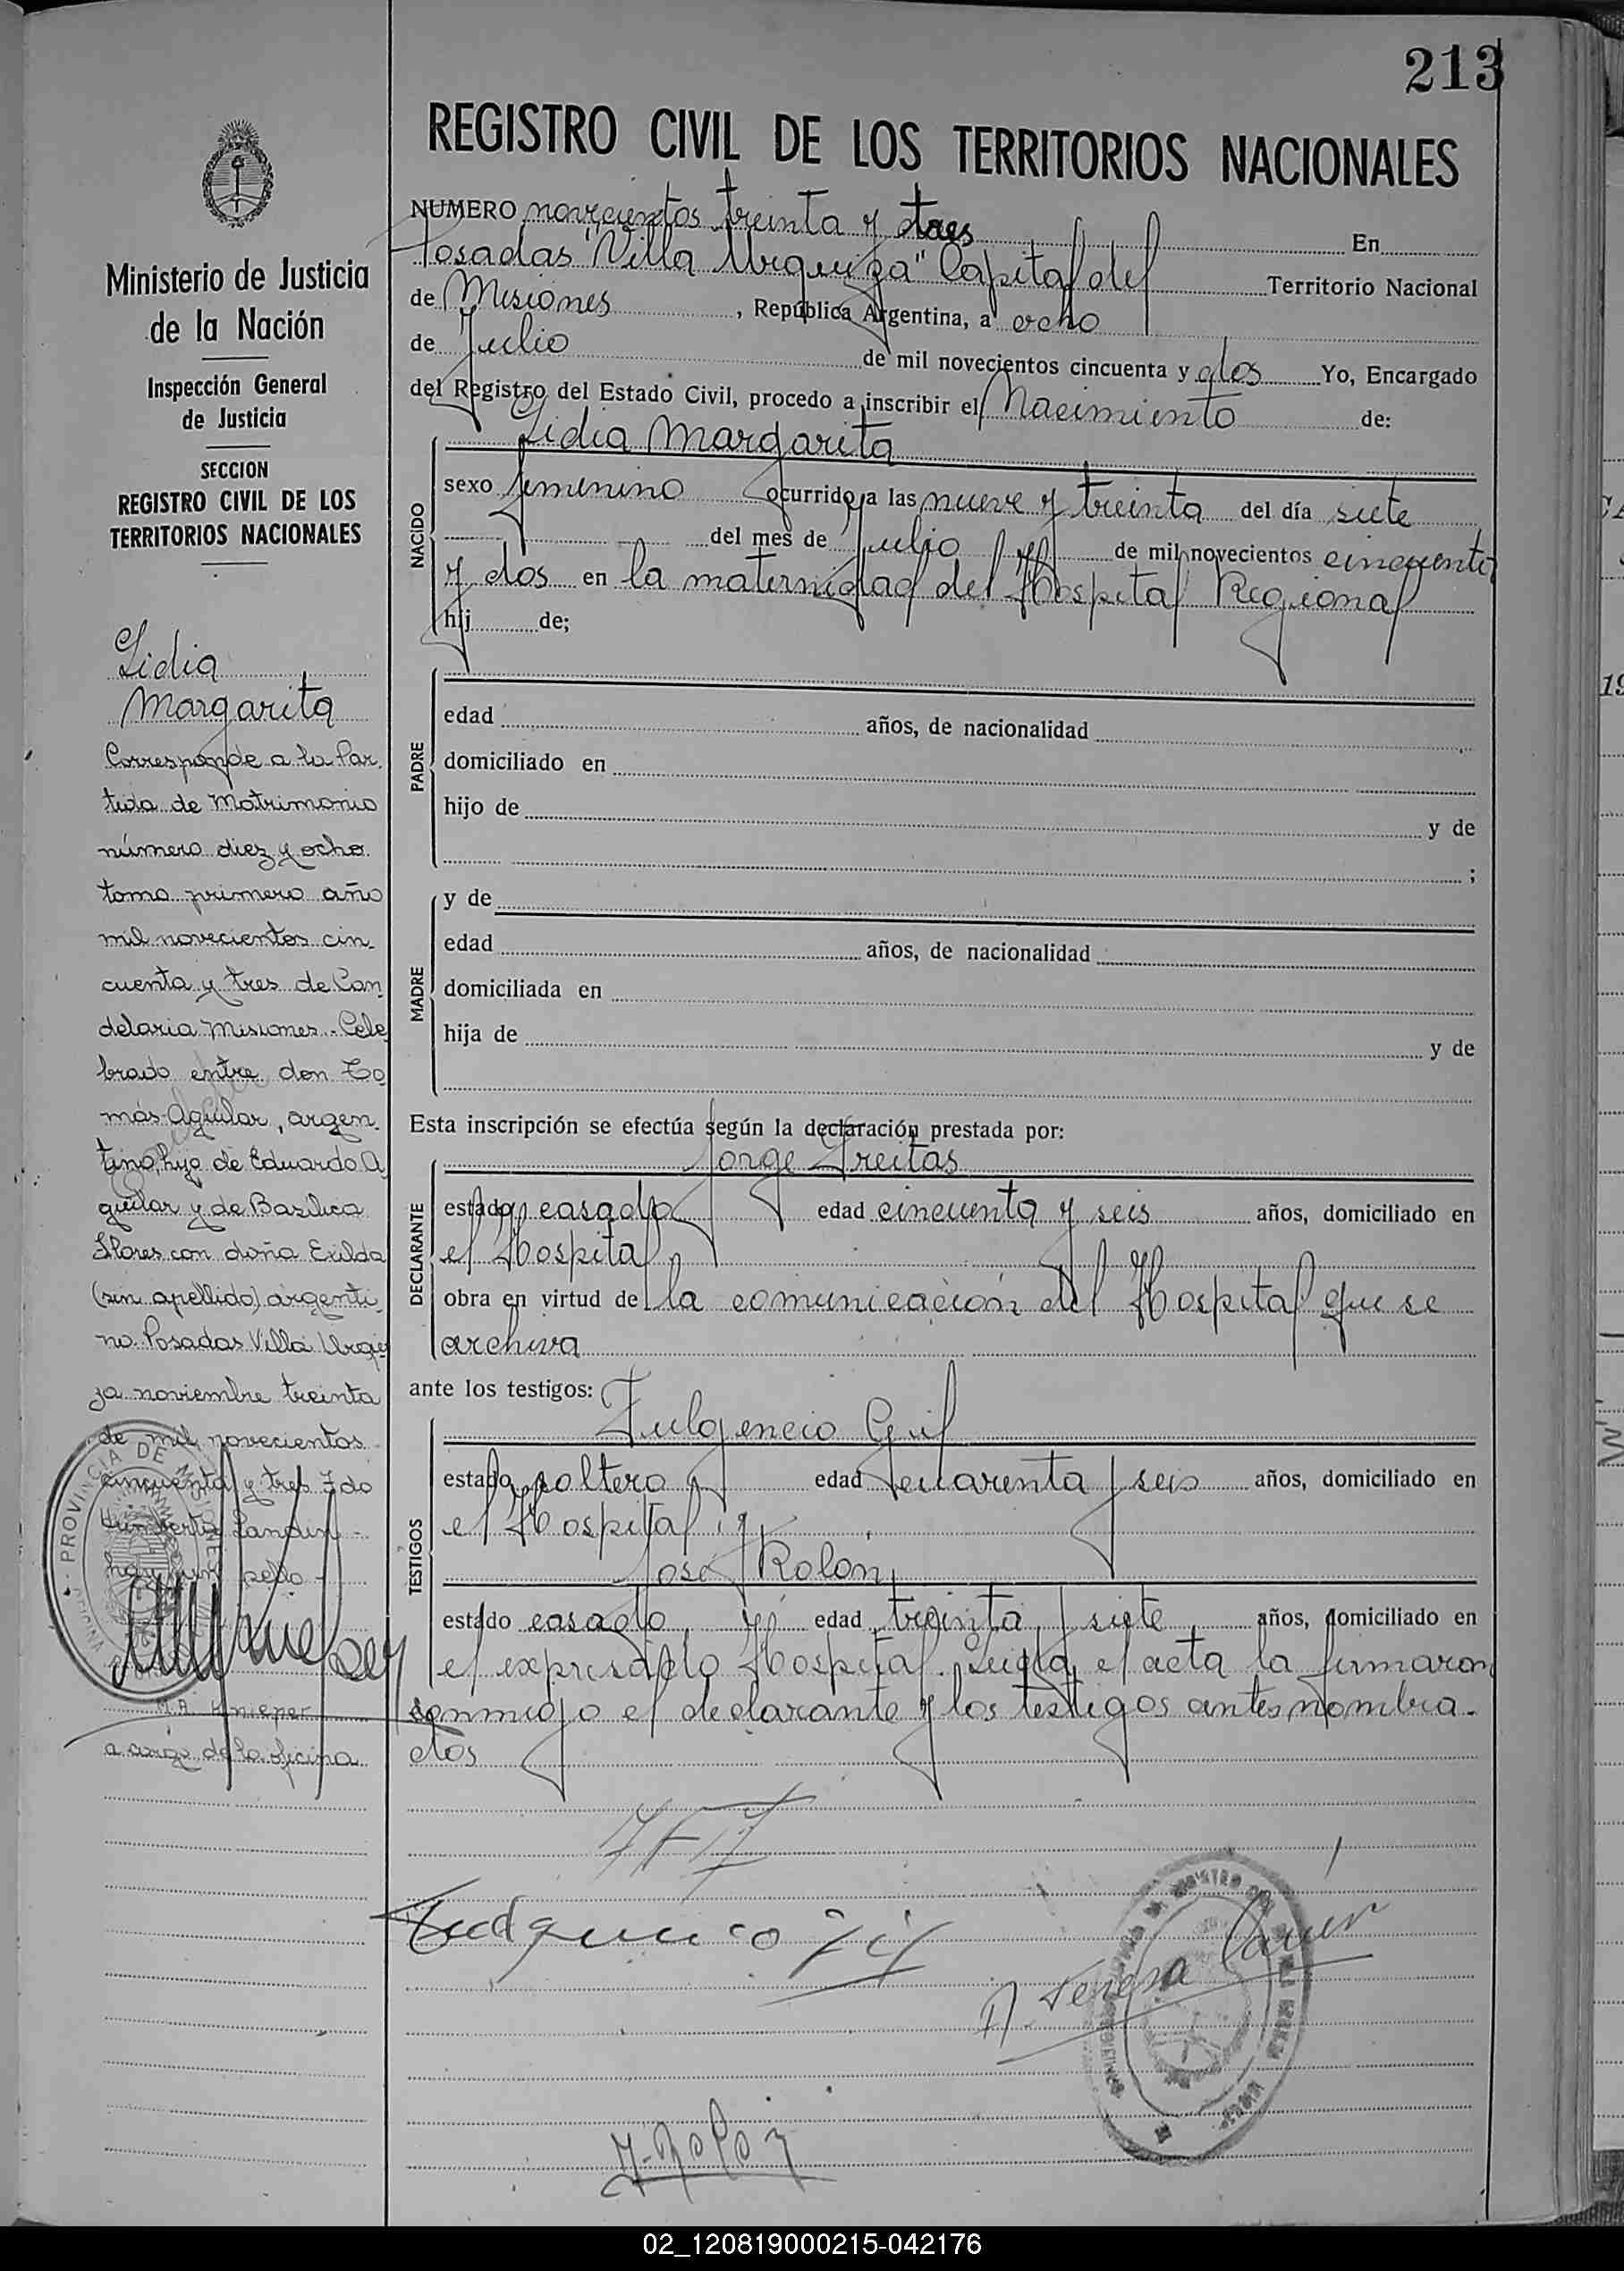 213
REGISTRO CIVIL DE LOS TERRITORIOS NACIONALES
Ministerio de Justicia
de la Nación
Inspección General
de Justicia
SECCION
REGISTRO CIVIL DE LOS
TERRITORIOS NACIONALES
Lidia
Margarita
Corresponde a la Par
tida de Matrimonio
número diez y ocho
tomo primero año
mil novecientos cin-
cuenta y tres de Can
delaria Misiones. Cele
brado entre don To
más Aguilar, argen-
tino, hijo de Eduardo A
guilar y de Basilica
Flores con doña Exilda
(sin apellido) argenti
no. Posadas Villa Urqui
za noviembre treinta
de mil novecientos
cincuenta y tres Fdo
hay un sello
M.A. Knieper
a cargo de la oficina
NUMERO novecientos treinta y tres En
Posadas "Villa Urquiza" Capital del Territorio Nacional
de Misiones, República Argentina, a ocho
de Julio de mil novecientos cincuenta y dos Yo, Encargado
del Registro del Estado Civil, procedo a inscribir el Nacimiento de:
NACIDO
Lidia Margarita
sexo femenino ocurrido a las nueve y treinta del día siete
del mes de Julio de mil novecientos cincuenta
y dos en la maternidad del Hospital Regional
hij de;
PADRE
edad años, de nacionalidad
domiciliado en
hijo de y de
;
MADRE
y de
edad años, de nacionalidad
domiciliada en
hija de y de
Esta inscripción se efectúa según la declaración prestada por:
DECLARANTE
Jorge Freitas
estado casado edad cincuenta y seis años, domiciliado en
el Hospital
obra en virtud de la comunicación del Hospital que se
archiva
ante los testigos:
TESTIGOS
Fulgencio Gil
estado soltero edad cuarenta y seis años, domiciliado en
el Hospital y
José Rolón
estado casado edad treinta y siete años, domiciliado en
el expresado Hospital. Leida el acta la firmaron
conmigo el declarante y los testigos antes nombra-
dos
Fulgencio Gil
J. Rolon
PROVINCIA DE MISIONES
02_120819000215-042176